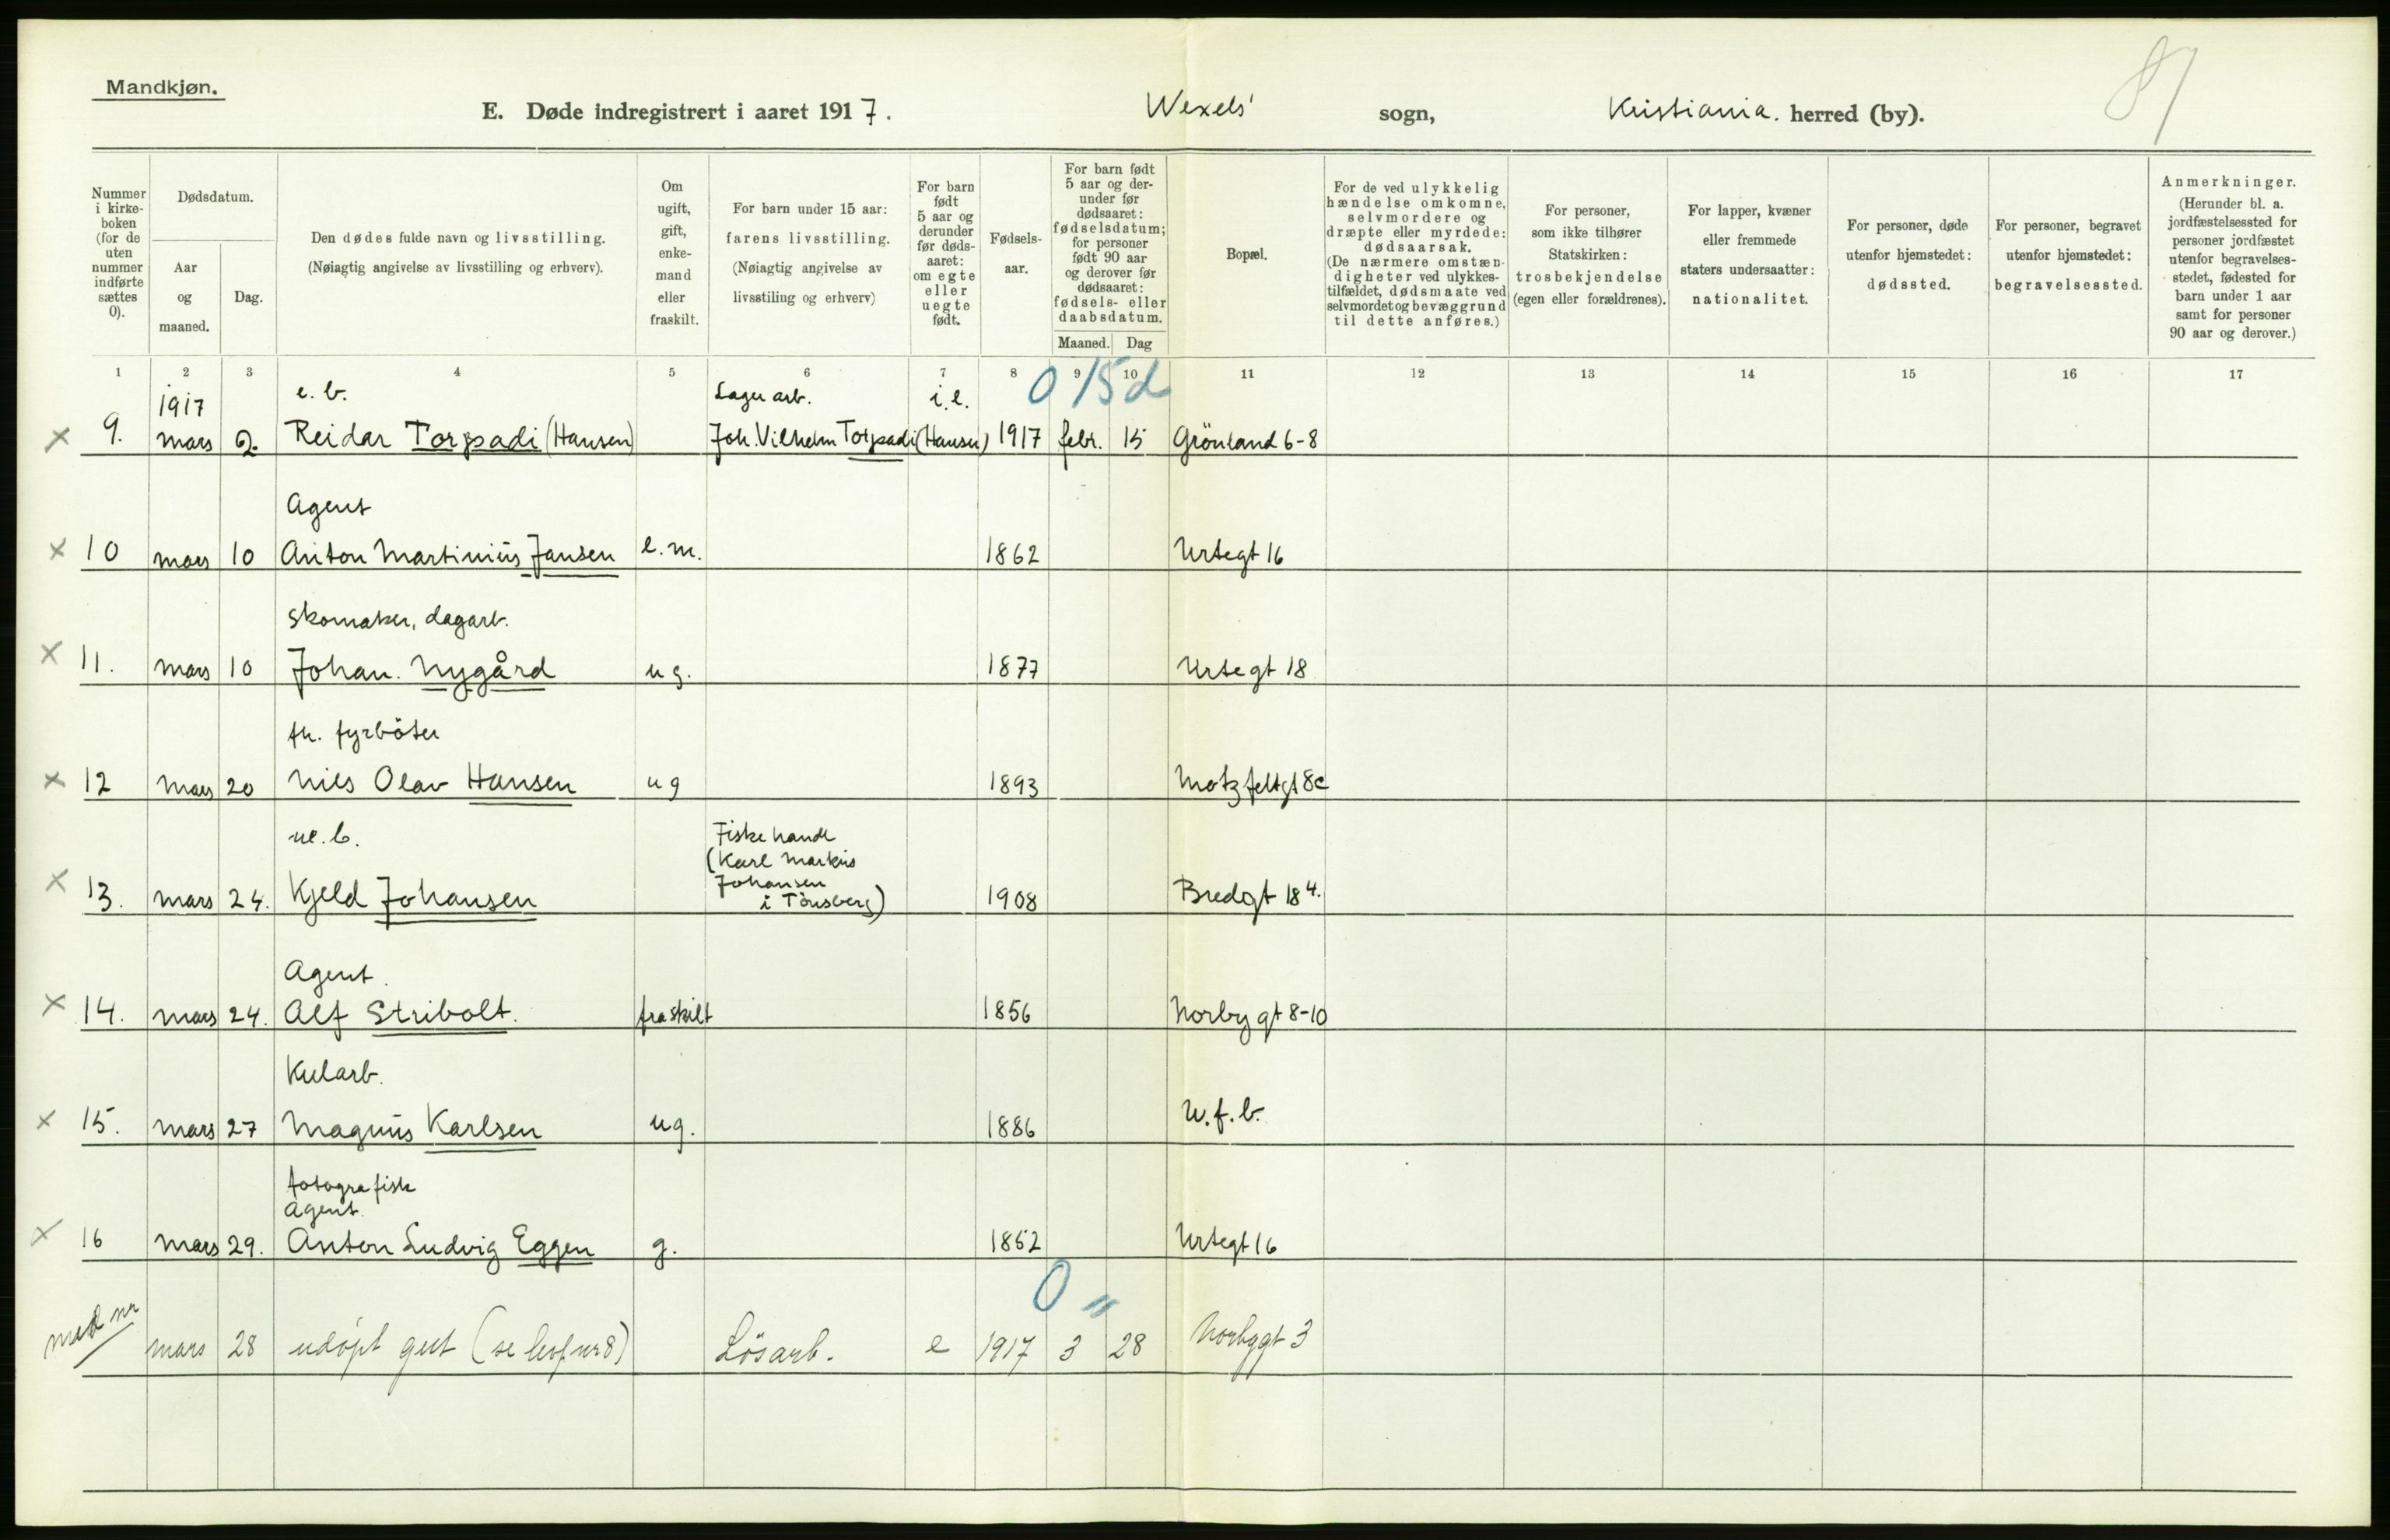 Mandkjøn.
87
E. Døde indregistrert i aaret 1917. Wexels' sogn, Kristiania. herred (by).
Nummer i kirkeboken (for de uten nummer indførte sættes 0).
Dødsdatum.
Aar og maaned.
Dag.
Den dødes fulde navn og livsstilling.
(Nøiagtig angivelse av livsstilling og erhverv).
Om ugift, gift, enkemand eller fraskilt.
For barn under 15 aar:
farens livsstilling.
(Nøiagtig angivelse av livsstiling og erhverv)
For barn født 5 aar og derunder før dødsaaret: om egte eller uegte født.
Fødselsaar.
For barn født 5 aar og derunder før dødsaaret: fødselsdatum; for personer født 90 aar og derover før dødsaaret: fødsels- eller daabsdatum.
Maaned. Dag
Bopæl.
For de ved ulykkelig hændelse omkomne, selvmordere og dræpte eller myrdede: dødsaarsak. (De nærmere omstændigheter ved ulykkestilfældet, dødsmaate ved selvmordet og bevæggrund til dette anføres.)
For personer, som ikke tilhører Statskirken: trosbekjendelse (egen eller forældrenes).
For lapper, kvæner eller fremmede staters undersaatter: nationalitet.
For personer, døde utenfor hjemstedet: dødssted.
For personer, begravet utenfor hjemstedet: begravelsessted.
Anmerkninger. (Herunder bl. a. jordfæstelsessted for personer jordfæstet utenfor begravelsesstedet, fødested for barn under 1 aar samt for personer 90 aar og derover.)
1 2 3 4 5 6 7 8 9 10 11 12 13 14 15 16 17
1917 e. b. Lager arb. i. e. 0 15 d
x 9. mars 2. Reidar Torpadi (Hansen) Joh. Vilhelm Torpadi (Hansen) 1917 febr. 15 Grönland 6-8
Agent
x 10 mars 10 Anton Martinius Jansen e. m. 1862 Urtegt 16
Skomaker, dagarb.
x 11. mars 10 Johan. Nygård ug. 1877 Urtegt 18
fh. fyrböter
x 12 mars 20 Nils Olav Hansen ug 1893 Motzfeltgt 8c
ue. b. Fiskehandl
(Karl Markus
Johansen
x 13. mars 24. Kjeld Johansen i Tönsberg) 1908 Bredgt 18 4.
Agent.
x 14. mars 24. Alf Stribolt. fraskilt 1856 Norbygt 8-10
Kularb.
x 15. mars 27 Magnus Karlsen ug. 1886 U. f. b.
fotografisk
Agent.
x 16 mars 29. Anton Ludvig Eggen g. 1852 Urtegt 16
0 "
mars 28 udöpt gut (se nr 8) Lösarb. e 1917 3 28 Norbygt 3